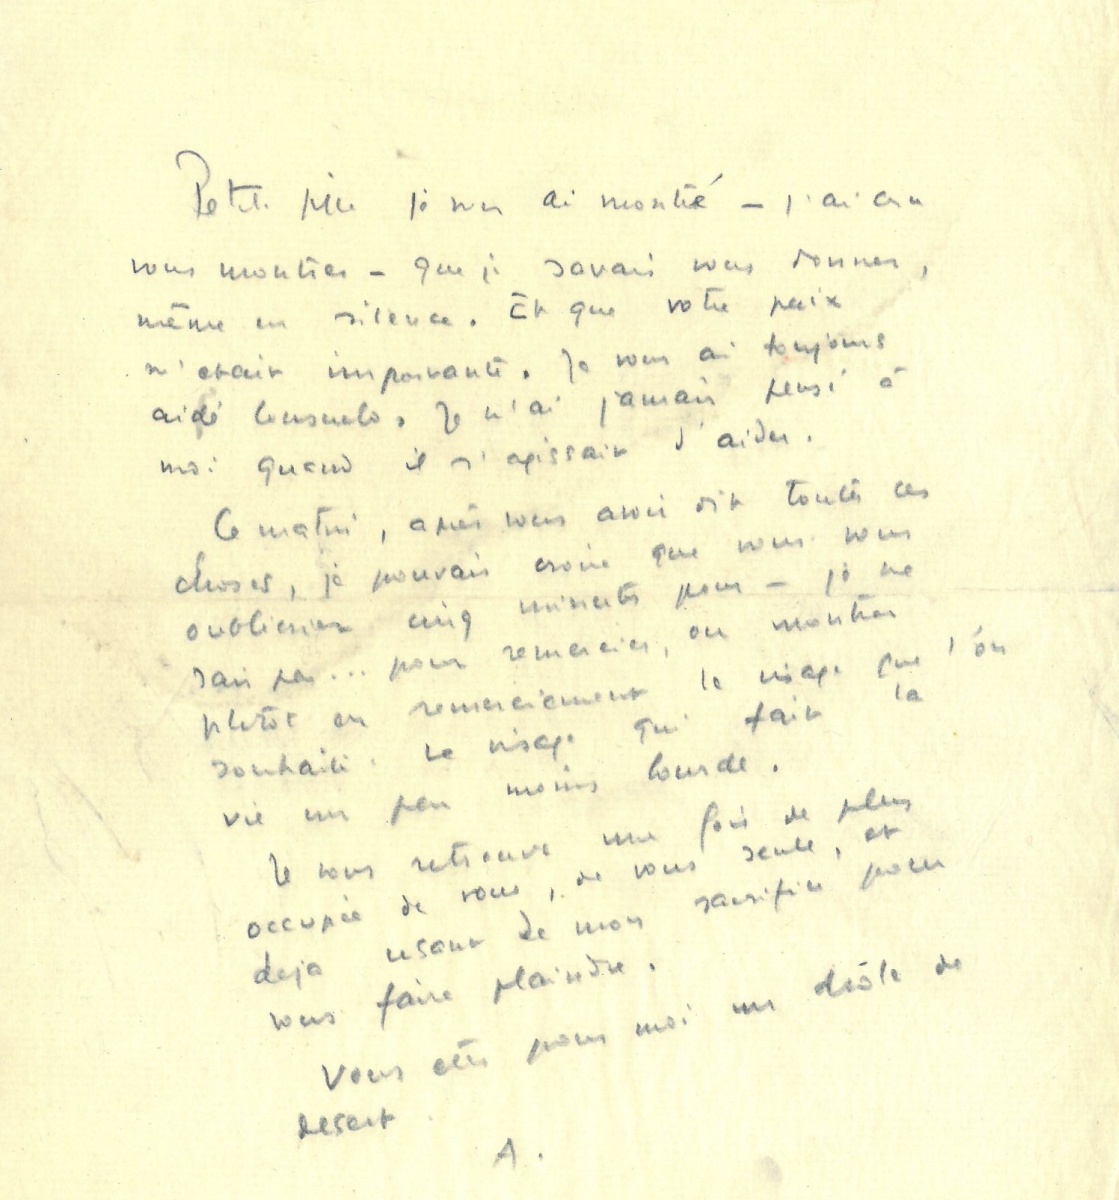 Petite fille je vous ai montré – j'ai cru
vous montrer – que je savais vous donner,
même en silence. Et que votre paix
m'était importante. Je vous ai toujours
aidé Consuelo. Je n'ai jamais pensé à
moi quand il s'agissait d'aider.
Ce matin, après vous avoir dit toutes ces
choses, je pouvais croire que vous vous
oublieriez cinq minutes pour – je ne
sais pas... pour remercier, ou montrer
plutôt en remerciement le visage que l'on
souhaite. Le visage qui fait la
vie un peu moins lourde.
Je vous retrouve une fois de plus
occupée de vous, de vous seule, et
deja usant de mon sacrifice pour
vous faire plaindre.
Vous êtes pour moi un drôle de
desert.
A.